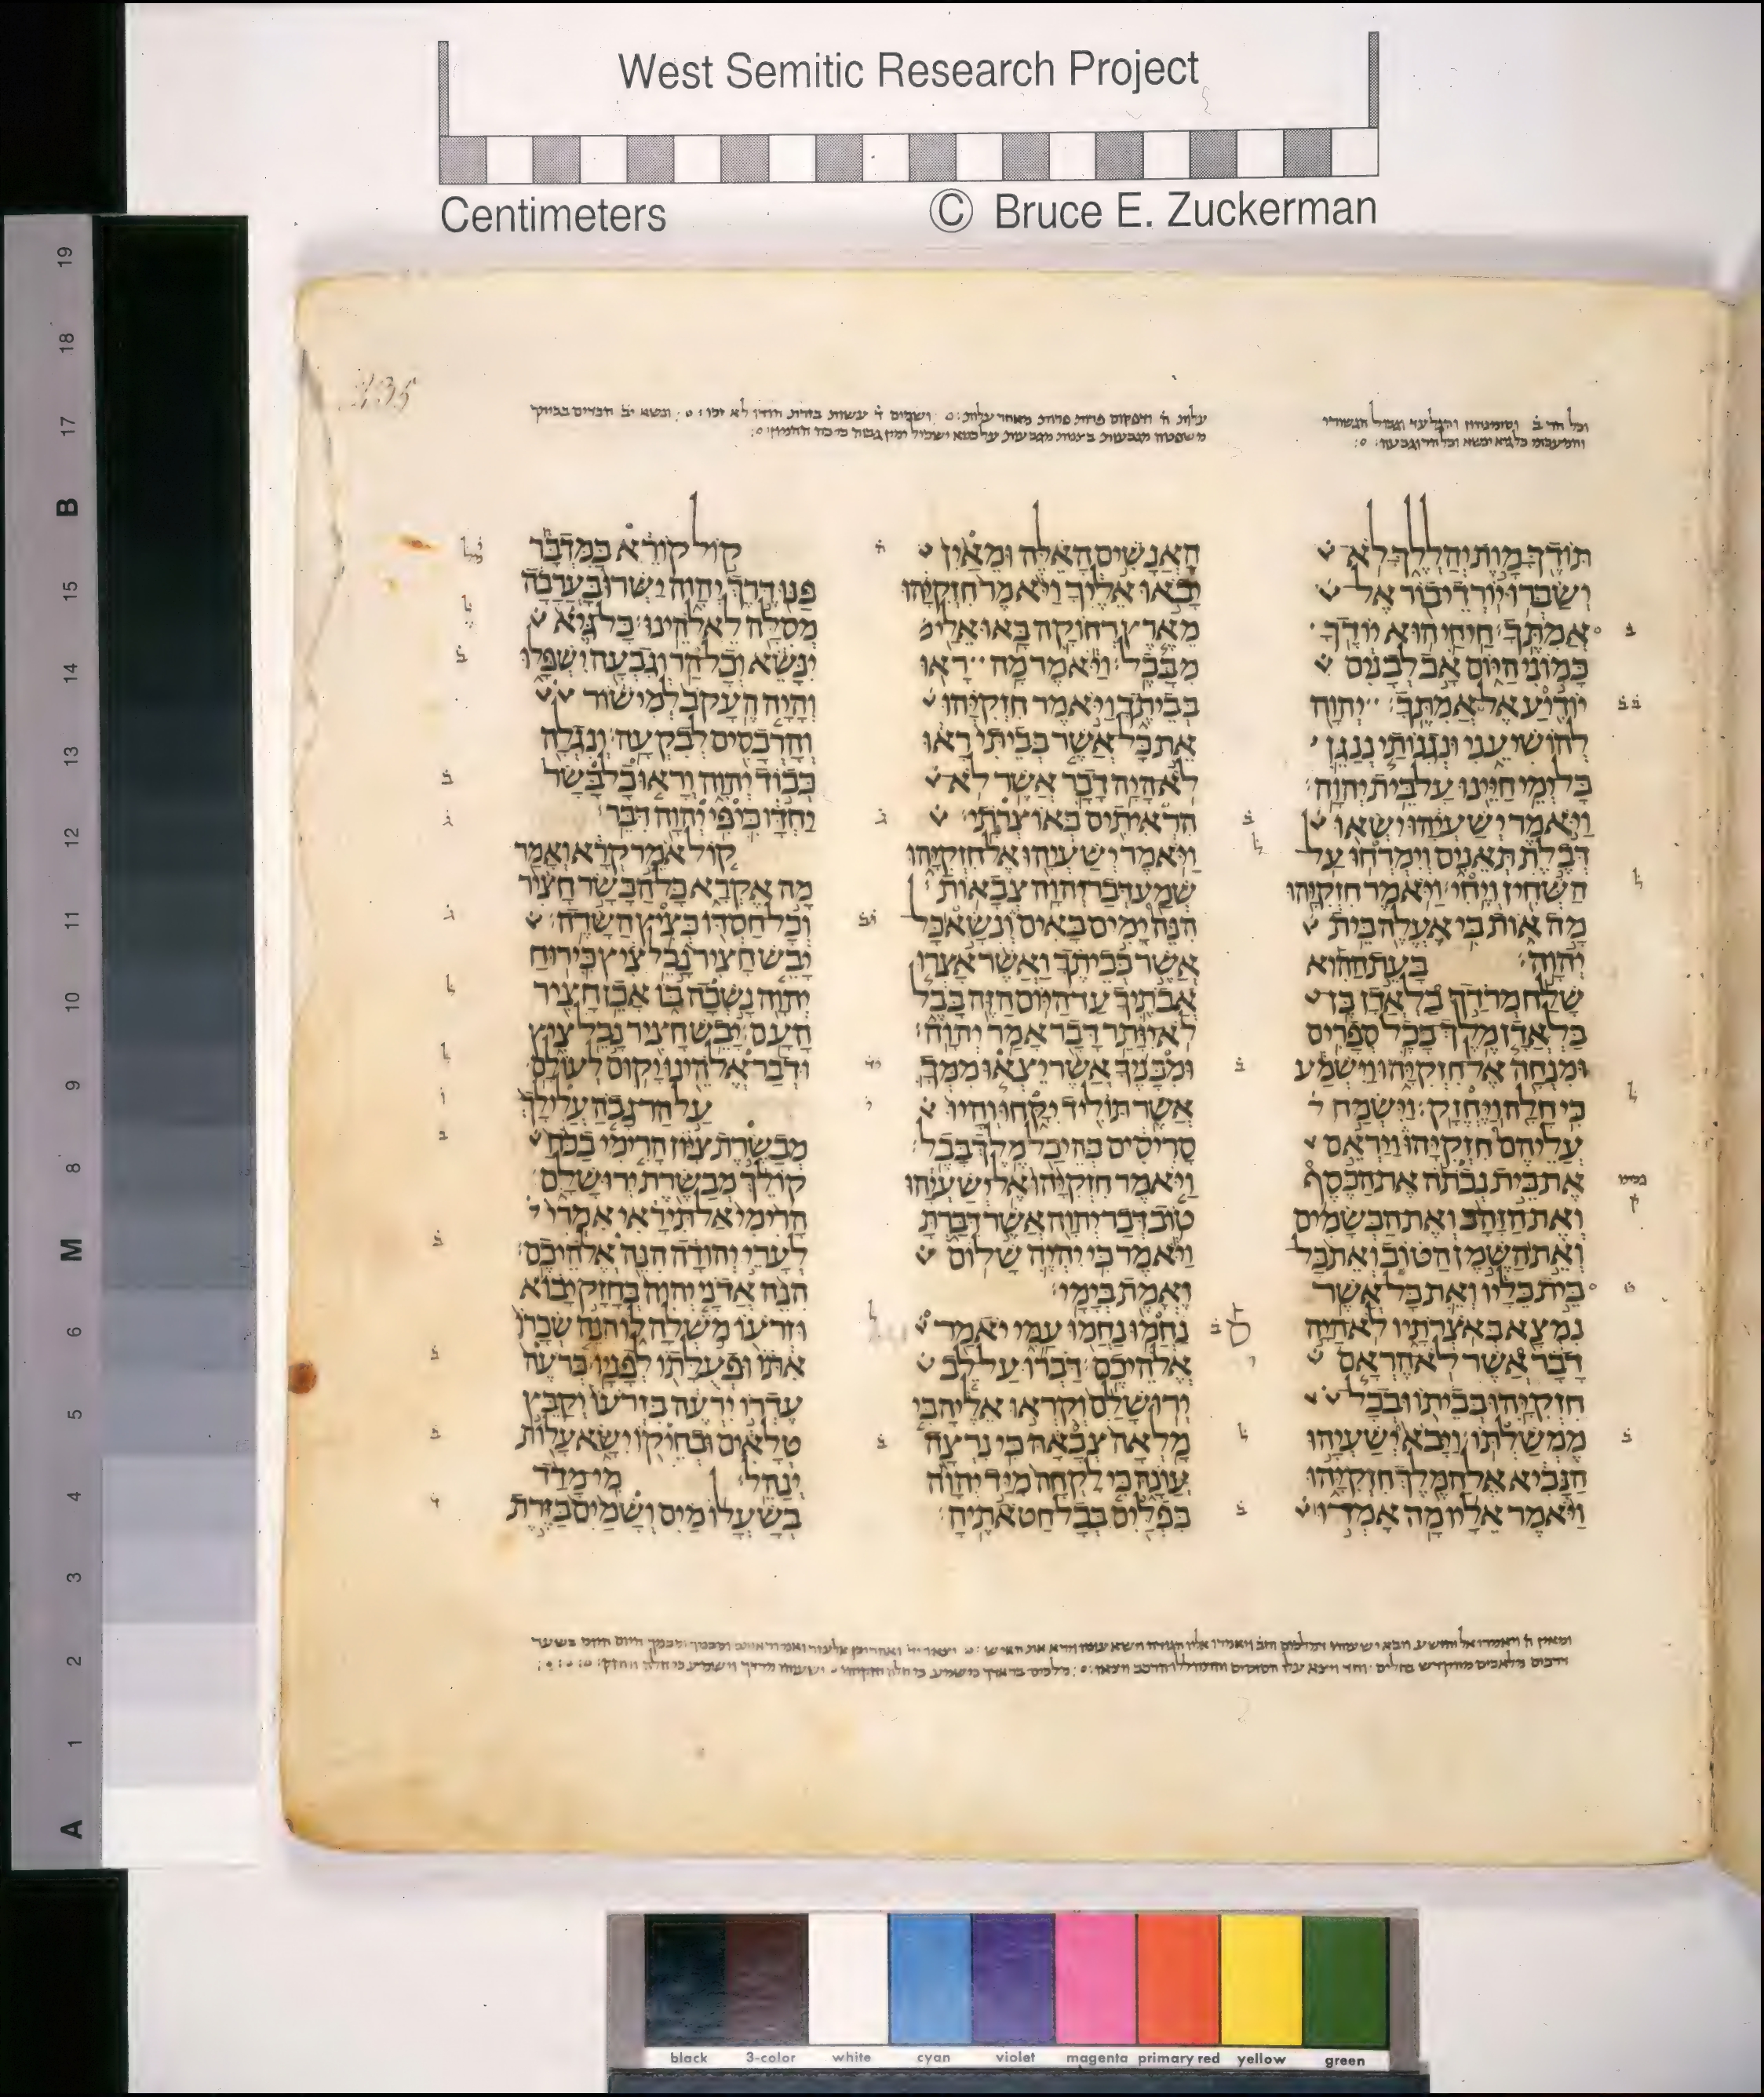 West Semitic Research Project
Centimeters © Bruce E. Zuckerman
435
תודך מות יהללך לא
ישברו יורדי בור אל
אמתך חי חי הוא יודך
כמוני היום אב לבנים
יודיע אל אמתך יהוה
להושיעני ונגנותי ננגן
כל ימי חיינו על בית יהוה
ויאמר ישעיהו ישאו
דבלת תאנים וימרחו על
השחין ויחי ויאמר חזקיהו
מה אות כי אעלה בית
יהוה בעת ההוא
שלח מרדך בלאדן בן
בלאדן מלך בבל ספרים
ומנחה אל חזקיהו וישמע
כי חלה ויחזק וישמח
עליהם חזקיהו ויראם
את בית נכתה את הכסף
ואת הזהב ואת הבשמים
ואת השמן הטוב ואת כל
בית כליו ואת כל אשר
נמצא באצרתיו לא היה
דבר אשר לא הראם
חזקיהו בביתו ובכל
ממשלתו ויבא ישעיהו
הנביא אל המלך חזקיהו
ויאמר אליו מה אמרו
האנשים האלה ומאין
יבאו אליך ויאמר חזקיהו
מארץ רחוקה באו אלי
מבבל ויאמר מה ראו
בביתך ויאמר חזקיהו
את כל אשר בביתי ראו
לא היה דבר אשר לא
הראיתים באוצרתי
ויאמר ישעיהו אל חזקיהו
שמע דבר יהוה צבאות
הנה ימים באים ונשא כל
אשר בביתך ואשר אצרו
אבתיך עד היום הזה בבל
לא יותר דבר אמר יהוה
ומבניך אשר יצאו ממך
אשר תוליד יקחו והיו
סריסים בהיכל מלך בבל
ויאמר חזקיהו אל ישעיהו
טוב דבר יהוה אשר דברת
ויאמר כי יהיה שלום
ואמת בימי
נחמו נחמו עמי יאמר
אלהיכם דברו על לב
ירושלם וקראו אליה כי
מלאה צבאה כי נרצה
עונה כי לקחה מיד יהוה
כפלים בכל חטאתיה
קול קורא במדבר
פנו דרך יהוה ישרו בערבה
מסלה לאלהינו כל גיא
ינשא וכל הר וגבעה ישפלו
והיה העקב למישור
והרכסים לבקעה ונגלה
כבוד יהוה וראו כל בשר
יחדו כי פי יהוה דבר
קול אמר קרא ואמר
מה אקרא כל הבשר חציר
וכל חסדו כציץ השדה
יבש חציר נבל ציץ כי רוח
יהוה נשבה בו אכן חציר
העם יבש חציר נבל ציץ
ודבר אלהינו יקום לעולם
על הר גבה עלי לך
מבשרת ציון הרימי בכח
קולך מבשרת ירושלם
הרימי אל תיראי אמרי
לערי יהודה הנה אלהיכם
הנה אדני יהוה בחזק יבוא
וזרעו משלה לו הנה שכרו
אתו ופעלתו לפניו כרעה
עדרו ירעה בזרעו יקבץ
טלאים ובחיקו ישא עלות
ינהל מי מדד
בשעלו מים ושמים בזרת
A 1 2 3 4 5 6 M 8 9 10 11 12 13 14 15 B 17 18 19
black 3-color white cyan violet magenta primary red yellow green